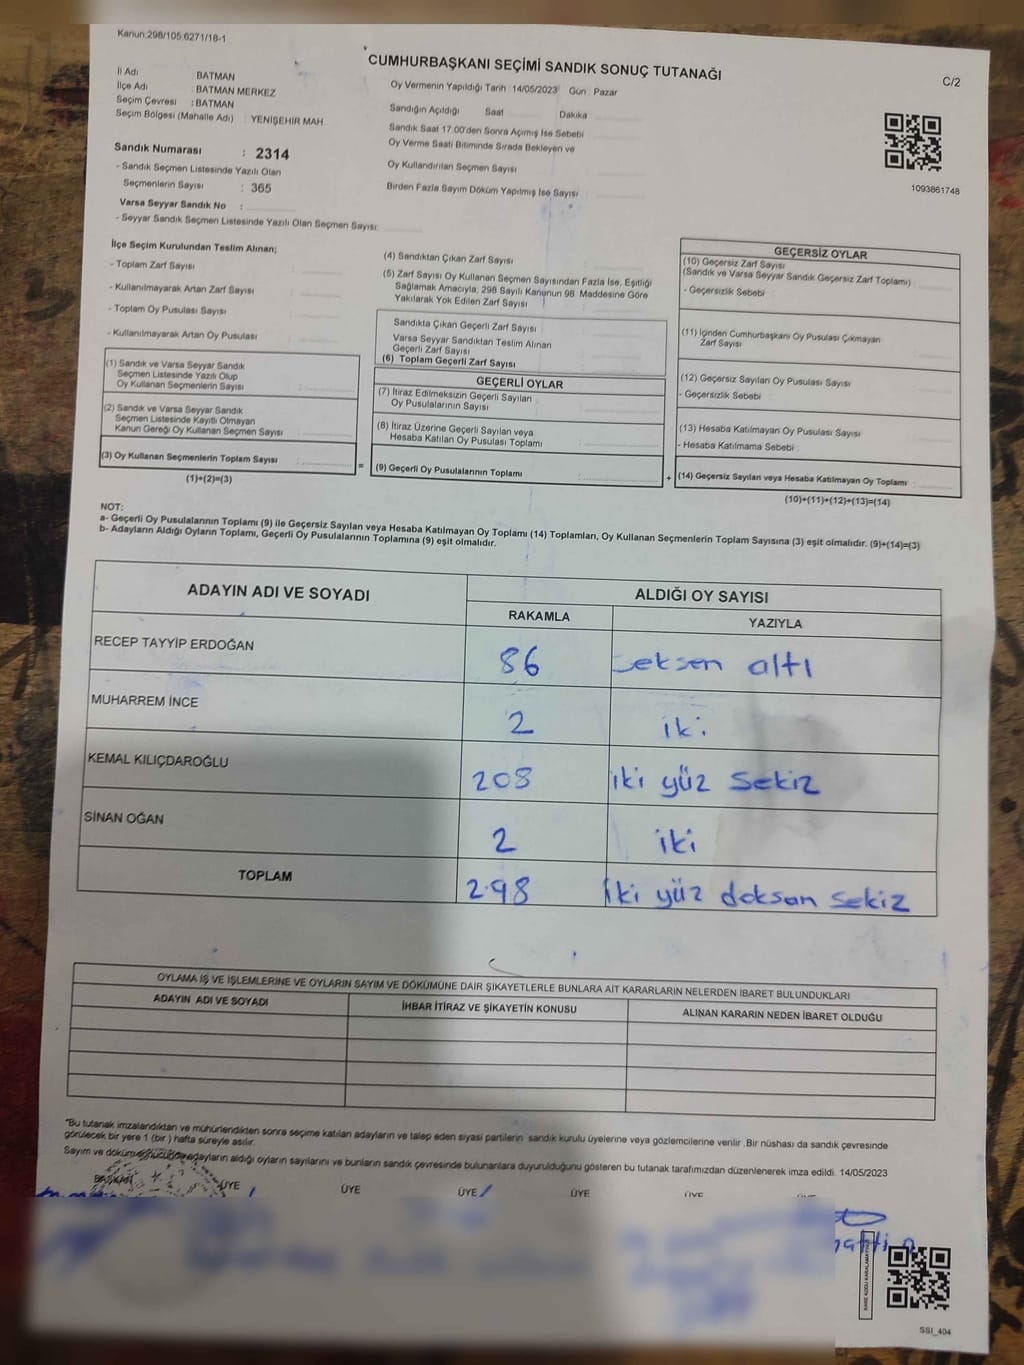 Kanun:298/105;6271/18-1
CUMHURBAŞKANI SEÇİMİ SANDIK SONUÇ TUTANAĞI
C/2
İl Adı BATMAN
İlçe Adı : BATMAN MERKEZ
Seçim Çevresi : BATMAN
Seçim Bölgesi (Mahalle Adı) : YENİŞEHİR MAH.
Sandık Numarası : 2314
- Sandık Seçmen Listesinde Yazılı Olan
Seçmenlerin Sayısı : 365
Varsa Seyyar Sandık No :
- Seyyar Sandık Seçmen Listesinde Yazılı Olan Seçmen Sayısı:
Oy Vermenin Yapıldığı Tarih : 14/05/2023 Gün : Pazar
Sandığın Açıldığı Saat Dakika
Sandık Saat 17:00'den Sonra Açılmış İse Sebebi
Oy Verme Saati Bitiminde Sırada Bekleyen ve
Oy Kullandırılan Seçmen Sayısı
Birden Fazla Sayım Döküm Yapılmış İse Sayısı
1093861748
İlçe Seçim Kurulundan Teslim Alınan;
- Toplam Zarf Sayısı
- Kullanılmayarak Artan Zarf Sayısı
- Toplam Oy Pusulası Sayısı
- Kullanılmayarak Artan Oy Pusulası
(1) Sandık ve Varsa Seyyar Sandık
Seçmen Listesinde Yazılı Olup
Oy Kullanan Seçmenlerin Sayısı
(2) Sandık ve Varsa Seyyar Sandık
Seçmen Listesinde Kayıtlı Olmayan
Kanun Gereği Oy Kullanan Seçmen Sayısı
(3) Oy Kullanan Seçmenlerin Toplam Sayısı
(1)+(2)=(3)
(4) Sandıktan Çıkan Zarf Sayısı
(5) Zarf Sayısı Oy Kullanan Seçmen Sayısından Fazla İse, Eşitliği
Sağlamak Amacıyla, 298 Sayılı Kanunun 98. Maddesine Göre
Yakılarak Yok Edilen Zarf Sayısı
Sandıkta Çıkan Geçerli Zarf Sayısı
Varsa Seyyar Sandıktan Teslim Alınan
Geçerli Zarf Sayısı
(6) Toplam Geçerli Zarf Sayısı
GEÇERLİ OYLAR
(7) İtiraz Edilmeksizin Geçerli Sayılan
Oy Pusulalarının Sayısı
(8) İtiraz Üzerine Geçerli Sayılan veya
Hesaba Katılan Oy Pusulası Toplamı
= (9) Geçerli Oy Pusulalarının Toplamı
GEÇERSİZ OYLAR
(10) Geçersiz Zarf Sayısı
(Sandık ve Varsa Seyyar Sandık Geçersiz Zarf Toplamı)
- Geçersizlik Sebebi
(11) İçinden Cumhurbaşkanı Oy Pusulası Çıkmayan
Zarf Sayısı
(12) Geçersiz Sayılan Oy Pusulası Sayısı
- Geçersizlik Sebebi
(13) Hesaba Katılmayan Oy Pusulası Sayısı
- Hesaba Katılmama Sebebi
+ (14) Geçersiz Sayılan veya Hesaba Katılmayan Oy Toplamı
(10)+(11)+(12)+(13)=(14)
NOT:
a- Geçerli Oy Pusulalarının Toplamı (9) ile Geçersiz Sayılan veya Hesaba Katılmayan Oy Toplamı (14) Toplamları, Oy Kullanan Seçmenlerin Toplam Sayısına (3) eşit olmalıdır. (9)+(14)=(3)
b- Adayların Aldığı Oyların Toplamı, Geçerli Oy Pusulalarının Toplamına (9) eşit olmalıdır.
ADAYIN ADI VE SOYADI ALDIĞI OY SAYISI
RAKAMLA YAZIYLA
RECEP TAYYİP ERDOĞAN 86 seksen altı
MUHARREM İNCE 2 iki
KEMAL KILIÇDAROĞLU 208 iki yüz sekiz
SİNAN OĞAN 2 iki
TOPLAM 298 iki yüz doksan sekiz
OYLAMA İŞ VE İŞLEMLERİNE VE OYLARIN SAYIM VE DÖKÜMÜNE DAİR ŞİKAYETLERLE BUNLARA AİT KARARLARIN NELERDEN İBARET BULUNDUKLARI
ADAYIN ADI VE SOYADI İHBAR İTİRAZ VE ŞİKAYETİN KONUSU ALINAN KARARIN NEDEN İBARET OLDUĞU
*Bu tutanak imzalandıktan ve mühürlendikten sonra seçime katılan adayların ve talep eden siyasi partilerin sandık kurulu üyelerine veya gözlemcilerine verilir .Bir nüshası da sandık çevresinde
görülecek bir yere 1 (bir ) hafta süreyle asılır.
Sayım ve döküm adayların aldığı oyların sayılarını ve bunların sandık çevresinde bulunanlara duyurulduğunu gösteren bu tutanak tarafımızdan düzenlenerek imza edildi. 14/05/2023
BAŞKAN ÜYE ÜYE ÜYE ÜYE
SSI_404